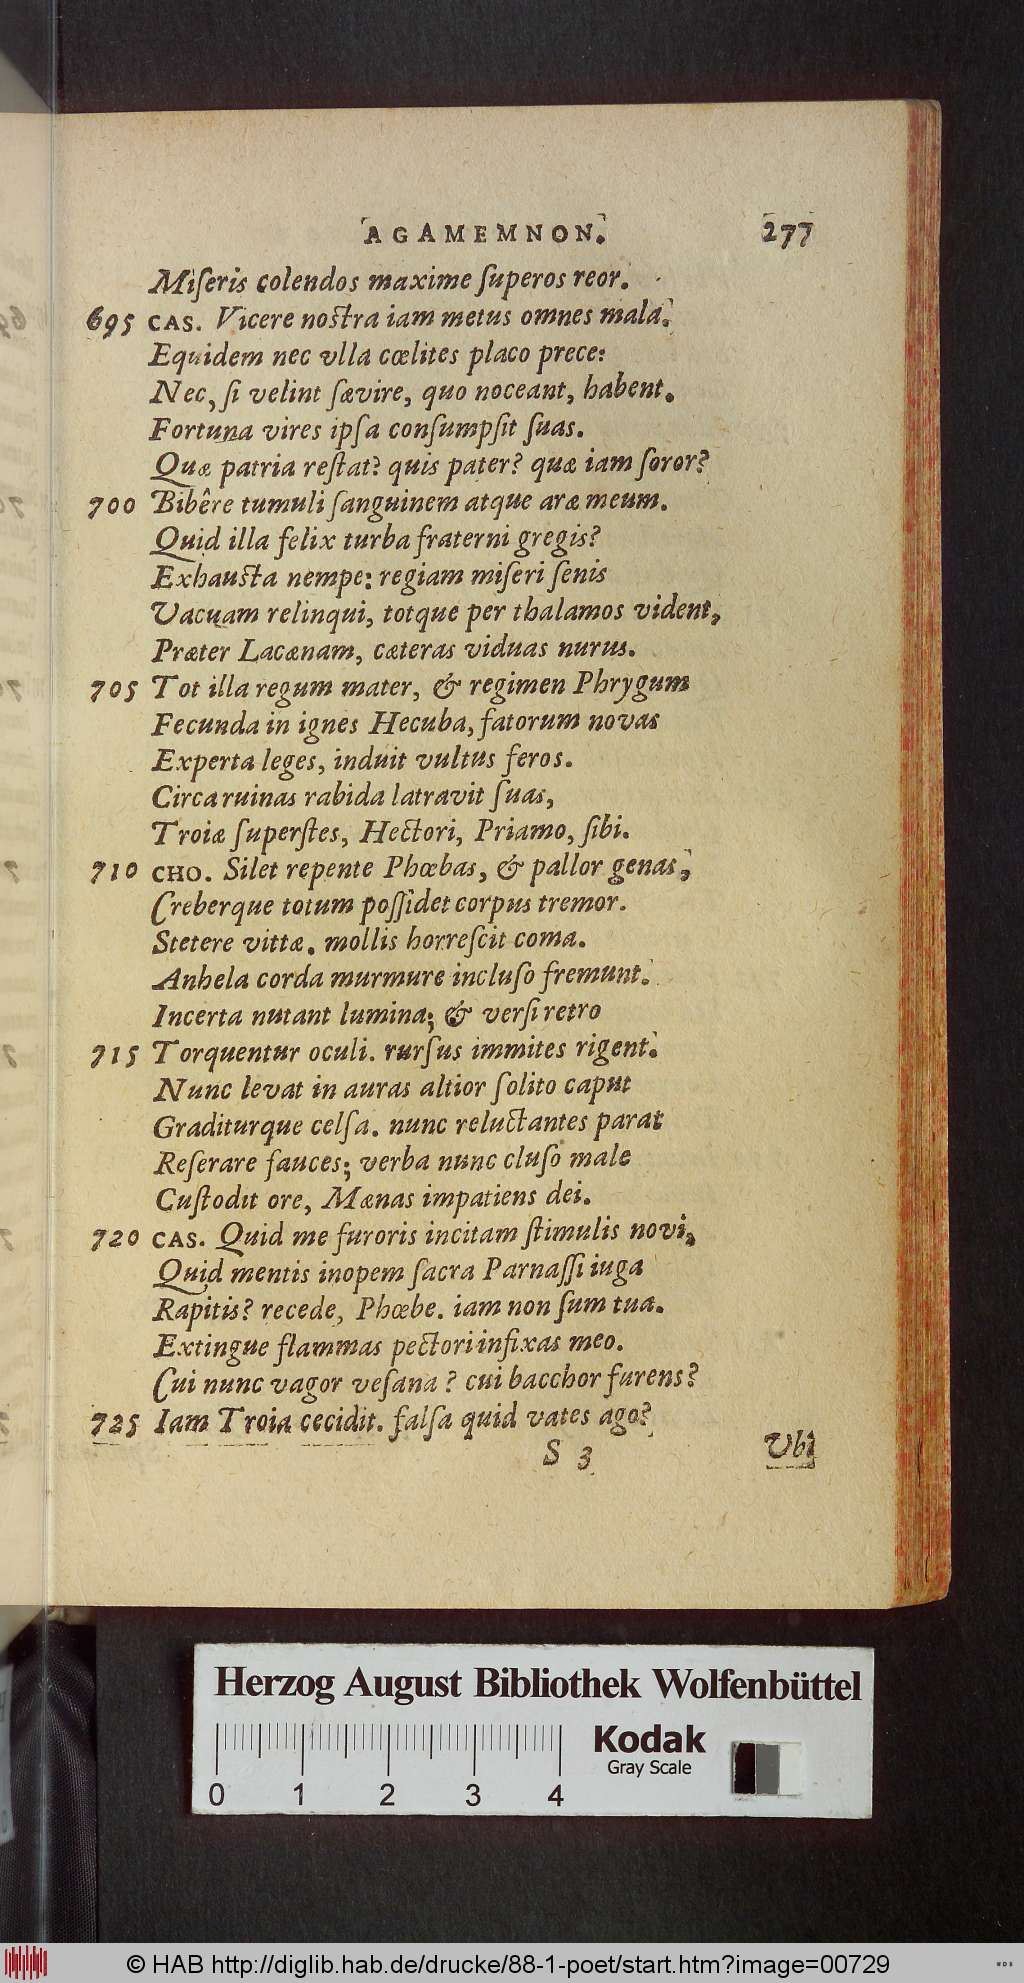 AGAMEMNON. 277
Miſeris colendos maxime ſuperos reor.
695 CAS. Vicere noſtra iam metus omnes mala.
Equidem nec vlla cœlites placo prece:
Nec, ſi velint ſævire, quo noceant, habent.
Fortuna vires ipſa conſumpſit ſuas.
Quæ patria reſtat? quis pater? quæ iam ſoror?
700 Bibêre tumuli ſanguinem atque aræ meum.
Quid illa felix turba fraterni gregis?
Exhauſta nempe: regiam miſeri ſenis
Vacuam relinqui, totque per thalamos vident,
Præter Lacænam, cæteras viduas nurus.
705 Tot illa regum mater, & regimen Phrygum
Fecunda in ignes Hecuba, fatorum novas
Experta leges, induit vultus feros.
Circa ruinas rabida latravit ſuas,
Troiæ ſuperſtes, Hectori, Priamo, ſibi.
710 CHO. Silet repente Phœbas, & pallor genas,
Creberque totum poſſidet corpus tremor.
Stetere vittæ. mollis horreſcit coma.
Anhela corda murmure incluſo fremunt.
Incerta nutant lumina; & verſi retro
715 Torquentur oculi. rurſus immites rigent.
Nunc levat in auras altior ſolito caput
Graditurque celſa. nunc reluctantes parat
Reſerare fauces; verba nunc cluſo male
Cuſtodit ore, Mænas impatiens dei.
720 CAS. Quid me furoris incitam ſtimulis novi,
Quid mentis inopem ſacra Parnaſſi iuga
Rapitis? recede, Phœbe. iam non ſum tua.
Extingue flammas pectori infixas meo.
Cui nunc vagor veſana? cui bacchor furens?
725 Iam Troia cecidit. falſa quid vates ago?
S 3 Vbi
Herzog August Bibliothek Wolfenbüttel
Kodak
Gray Scale
0 1 2 3 4
© HAB http://diglib.hab.de/drucke/88-1-poet/start.htm?image=00729